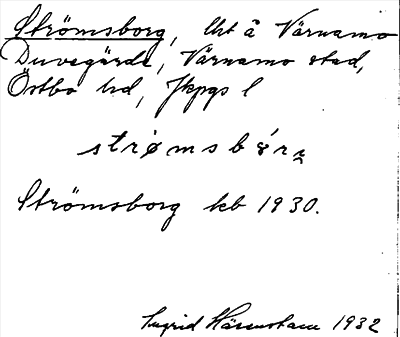 Strömsborg, lht å Värnamo
Duvegärde, Värnamo stad,
Östbo hd, Jkpgs l
strømsbór
Strömsborg kb 1930.
Ingrid 1932